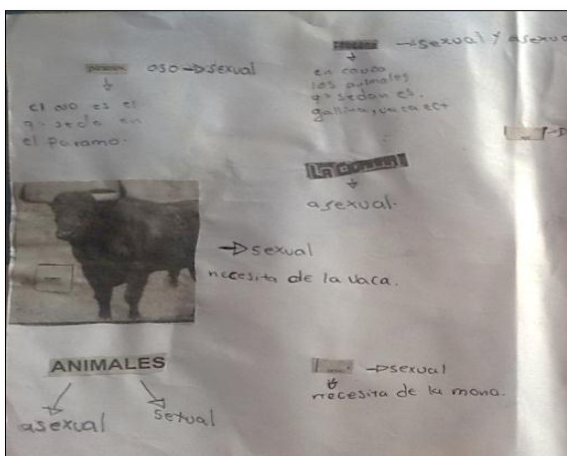 oso → sexual
el oso es el
q= seda en
el Paramo.
→ sexual y asexua
en cauca
los animales
q= sedan es.
gallina, vaca ect
asexual.
→ sexual
necesita de la vaca.
ANIMALES
asexual
sexual
→ sexual
necesita de la mona.